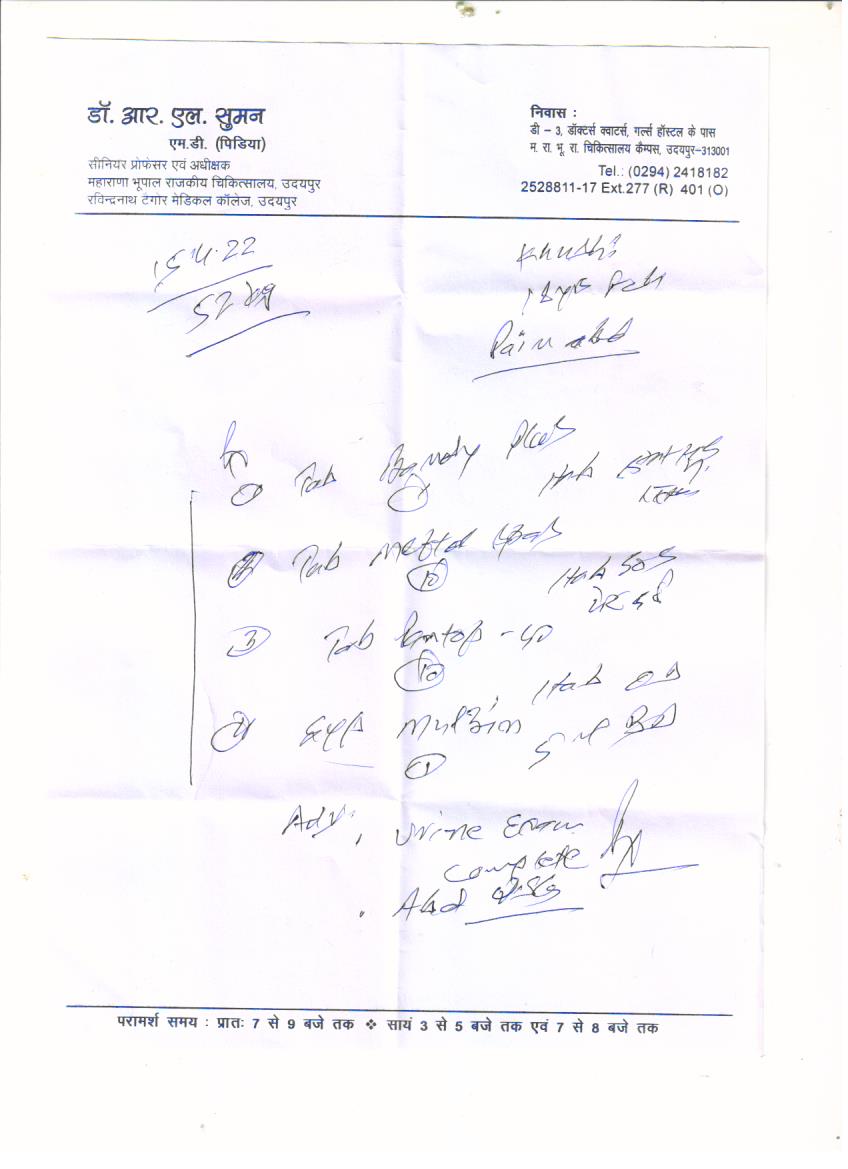 डॉ. आर. एल. सुमन
एम.डी. (पिडिया)
सीनियर प्रोफेसर एवं अधीक्षक
महाराणा भूपाल राजकीय चिकित्सालय, उदयपुर
रविन्द्रनाथ टैगोर मेडिकल कॉलेज, उदयपुर
निवास :
डी – 3, डॉक्टर्स क्वाटर्स, गर्ल्स हॉस्टल के पास
म. रा. भू. रा. चिकित्सालय कैम्पस, उदयपुर–313001
Tel.: (0294) 2418182
2528811-17 Ext.277 (R) 401 (O)
15.4.22
52
Khushi
18yrs
Pain abd
Tab
1 tab
Tab
10
1 tab SOS
3 Tab Pantop - 40
10
1 tab OD
4 Syp
1
5 ml BD
Adv. Urine Exam
Complete
Abd USG
परामर्श समय : प्रातः 7 से 9 बजे तक ❖ सायं 3 से 5 बजे तक एवं 7 से 8 बजे तक